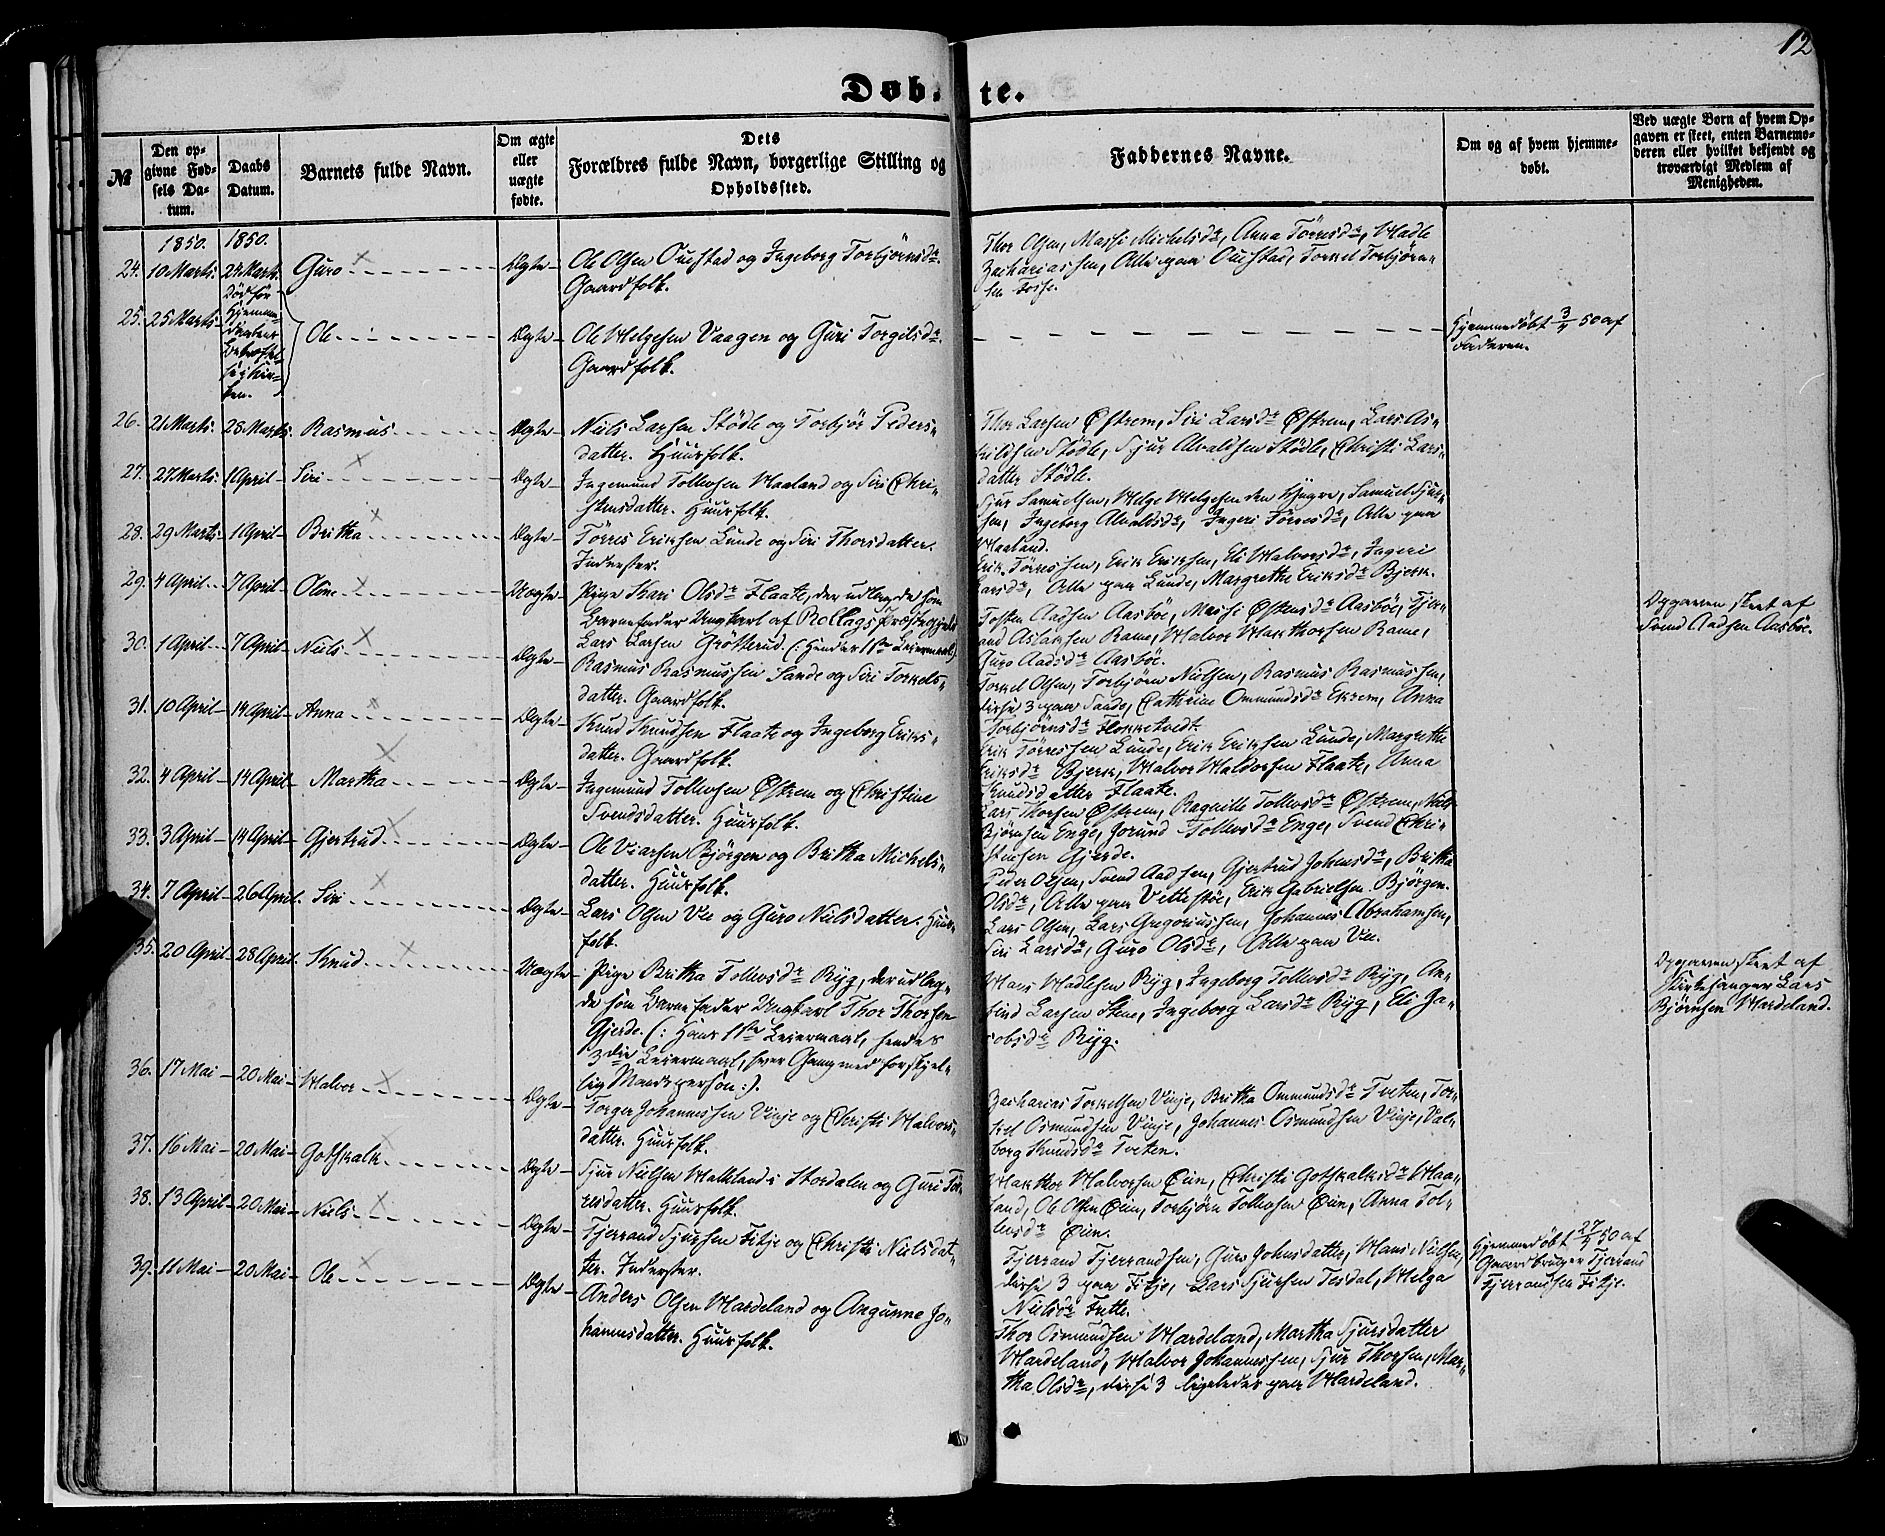 12
Døb- te.
№
Den opgivne Fødsels Datum.
Daabs Datum.
Barnets fulde Navn.
Om ægte eller uægte fødte.
Dets Forældres fulde Navn, borgerlige Stilling og Opholdssted.
Faddernes Navne.
Om og af hvem hjemmedøbt.
Ved uægte Børn af hvem Opgaven er skeet, enten Barnemoderen eller hvilket bekjendt og troværdigt Medlem af Menigheden.
1850. 1850.
24. 10 Marts. 24 Marts. Guro Ægte Ole Olsen Ouestad og Ingeborg Torbjørnsdr.
Gaardfolk.
Thor Olsen, Massi Michelsdr, Anna Tørresdr, Hadle
Zachariassen, Alle paa Ouestad, Torkel Torbjørn=
sen Fosse.
25. 25 Marts. Død før
Hjemme=
daabens
Bekræftel=
se i Kir=
ken. Ole Ægte Ole Helgesen Vaagen og Guri Torgilsdr.
Gaardfolk.
Hjemmedøbt 3/4 50 af
Faderen.
26. 21 Marts. 28 Marts. Rasmus Ægte Niels Larsen Stødle og Torbjør Peders=
datter. Huusfolk.
Thor Larsen Østrem, Siri Larsdr Østrem, Lars As=
kildsen Stødle, Sjur Alvaldsen Stødle, Christi Lars=
datter Stødle.
27. 27 Marts. 1 April Siri Ægte Ingemund Tollevsen Haaland og Siri Chri=
stensdatter. Huusfolk.
Sjur Samuelsen, Helge Helgesen den Yngre, Samuel Sjur=
sen, Ingeborg Alvaldsdr, Ingeri Tørresdr, Alle paa
Haaland.
28. 29 Marts. 1 April Britha Ægte Tørres Eriksen Lunde og Siri Thorsdatter.
Inderster.
Erik Tørressen, Erik Eriksen, Eli Halvorsdr, Ingeri
Larsdr, Alle paa Lunde, Margrethe Eriksdr Bjerk.
29. 4 April 7 April Oline Uægte Pige Kari Olsdr Flaate, der udlagde som
Barnefader Ungkarl af Rollags Præstegjeld
Lars Larsen Grøtterud. (: Hendes 1ste Leiermaal.)
Tosten Aadsen Aasbøe, Massi Østensdr Aasbøe, Fjer=
and Aslaksen Rame, Halvor Hakthorsen Rame,
Guro Aadsdr Aasbøe.
Opgaven skeet af
Svend Aadsen Aasbøe.
30. 1 April 7 April Niels Ægte Rasmus Rasmussen Sande og Siri Torkels=
datter. Gaardfolk.
Torkel Olsen, Torbjørn Nielsen, Rasmus Rasmussen,
disse 3 paa Sande, Cathrine Ommundsdr Ekrem, Anna
Torbjørnsdr Flokketvedt.
31. 10 April 14 April Anna Ægte Knud Knudsen Flaate og Ingeborg Eriks=
datter. Gaardfolk.
Erik Tørressen Lunde, Erik Eriksen Lunde, Margrethe
Eriksdr Bjerk, Halvor Haldorsen Flaate, Anna
Knudsdatter Flaate.
32. 4 April 14 April Martha Ægte Ingemund Tollevsen Østrem og Christine
Svendsdatter. Huusfolk.
Lars Thorsen Østrem, Ragnille Tollevsdr Østrem, Niels
Bjørnsen Enge, Jorund Tollevsdr Enge, Svend Chri=
stensen Gjerde.
33. 3 April 14 April Gjertrud Ægte Ole Viarsen Bjørgen og Britha Michels=
datter. Huusfolk.
Peder Olsen, Svend Aadsen, Gjertrud Johnsdr, Britha
Olsdr, Alle paa Vettestøe, Erik Gabrielsen Bjørgen.
34. 7 April 26 April. Siri Ægte Lars Olsen Vee og Guro Nielsdatter. Huus=
folk.
Lars Olsen, Lars Gregoriussen, Johannes Abrahamsen,
Siri Larsdr, Guro Olsdr, Alle paa Vee.
35. 20 April 28 April. Knud Uægte Pige Britha Tollevsdr Ryg, der udlag=
de som Barnefader Ungkarl Thor Thorsen
Gjerde. (: Hans 1ste Leiermaal, hendes
3die Leiermaal, hver Gang med forskjel=
lig Mandsperson:).
Hans Hadlesen Ryg, Ingeborg Tollevsdr Ryg, An=
find Larsen Stene, Ingeborg Larsdr Ryg, Eli Ja=
cobsdr Ryg.
Opgaven skeet af
Kirkesanger Lars
Bjørnsen Hardeland.
36. 17 Mai 20 Mai Halvor Ægte Torger Johannessen Vinje og Christi Halvors=
datter. Huusfolk.
Zacharias Torkelsen Vinje, Britha Ommundsdr Tveten, Tor=
kel Osmundsen Vinje, Johannes Osmundsen Vinje, Val=
borg Knudsdr Tveten.
37. 16 Mai 20 Mai Gotskalk Ægte Sjur Nielsen Halleland i Stordalen og Guri Tør=
resdatter. Huusfolk.
Hakthor Halvorsen Øien, Christi Gotskalksdr Haa=
land, Ole Olsen Øien, Torbjørn Tollevsen Øien, Anna Tol=
levsdr Øien.
38. 13 April 20 Mai Niels Ægte Fjerrand Sjursen Fitje og Christi Nielsdat=
ter. Inderster.
Fjerrand Fjerrandsen, Guro Johnsdatter, Hans Nielsen,
disse 3 paa Fitje, Lars Sjursen Tesdal, Helga
Nielsdr Frette.
Hjemmedøbt 27/4 50 af
Gaardbruger Fjerrand
Fjerrandsen Fitje.
39. 11 Mai 20 Mai Ole Ægte Anders Olsen Hardeland og Angunne Jo=
hannesdatter. Huusfolk.
Thor Osmundsen Hardeland, Martha Sjursdatter
Hardeland, Halvor Johannessen, Sjur Thorsen, Mar=
tha Olsdr, disse 3 ligeledes paa Hardeland.